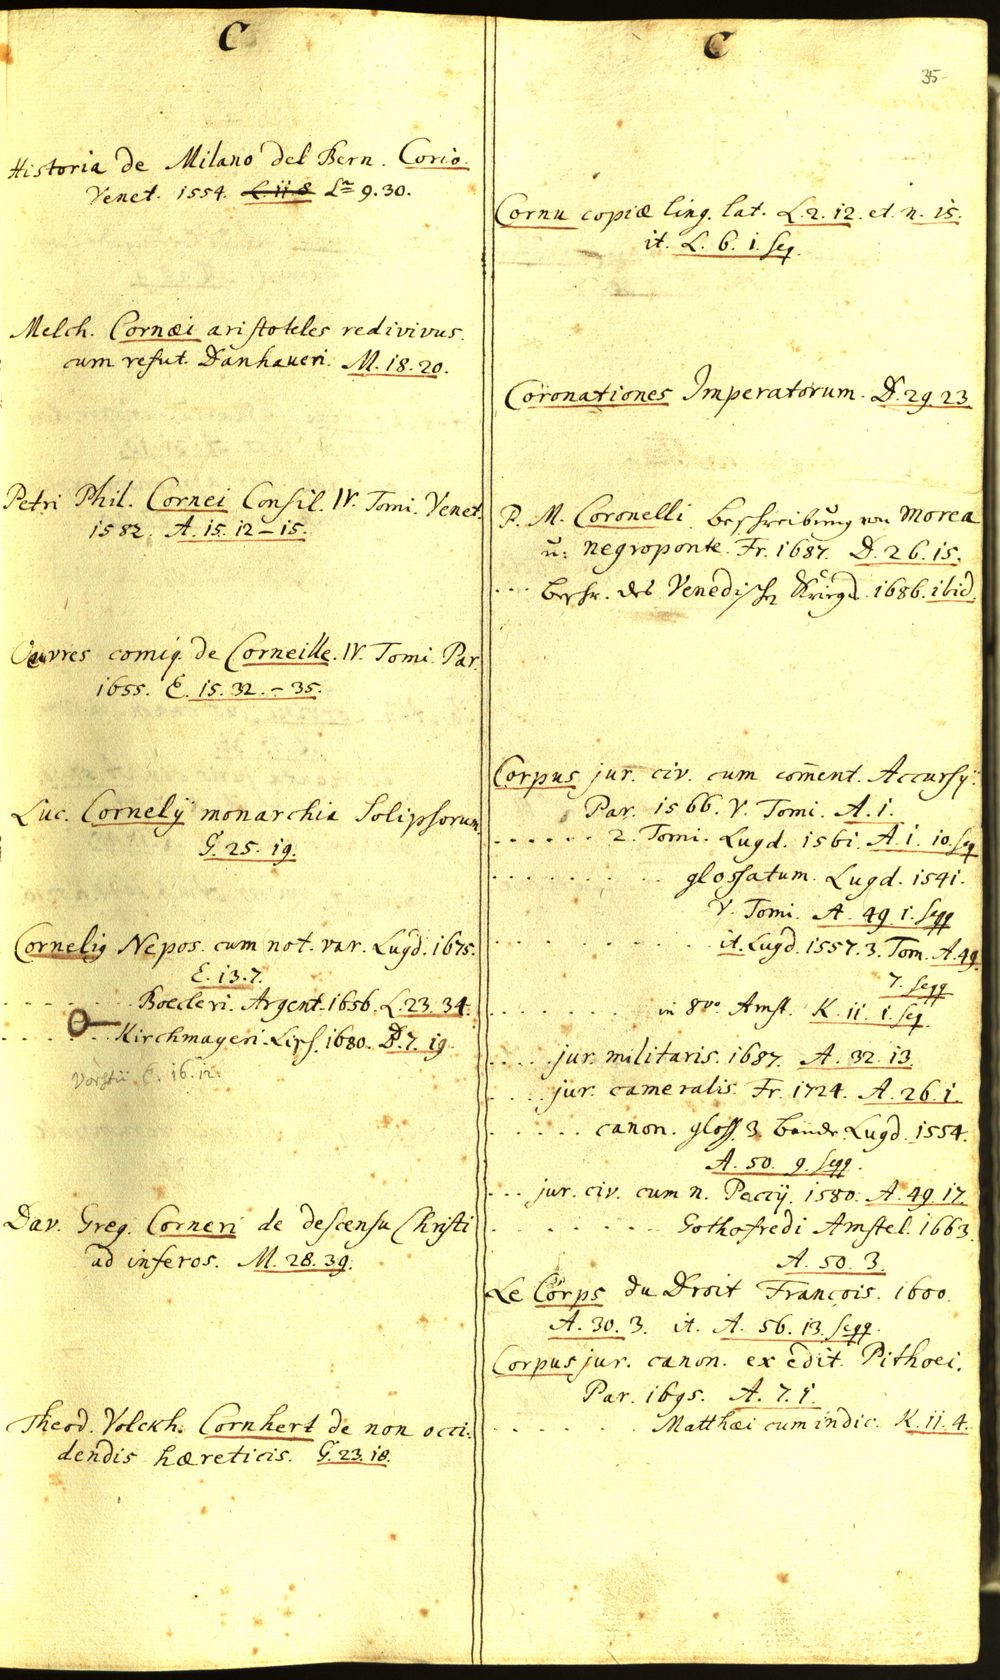 C
Historia de Milano del Bern. Corio.
Venet. 1554. L. 11. 8 L.ª 9. 30.
Melch. Cornæi aristoteles redivivus.
cum refut. Danhaueri. M. 18. 20.
Petri Phil. Cornei Consil. IV. Tomi. Venet.
1582. A. 15. 12 – 15.
Oeuvres comiq. de Corneille. IV. Tomi. Par.
1655. E. 15. 32. – 35.
Luc. Cornelÿ monarchia Solipsorum.
G. 25. 19.
Cornelig Nepos. cum not. var. Lugd. 1675.
E. 13. 7.
. . . . . . . Boecleri. Argent. 1656. L. 23. 34.
. . . . . . . Kirchmayeri. Lips. 1680. D. 7. 19.
Vorstii E. 16. 12.
Dav. Greg. Corneri de descensu Christi
ad inferos. M. 28. 39.
Theod. Volckh. Cornhert de non occi-
dendis hæreticis. G. 23. 18.
C
35
Cornu copiæ ling. lat. L. 2. 12. et. n. 15.
it. L. 6. 1. seq.
Coronationes Imperatorum. D. 29. 23
P. M. Coronelli Beschreibung von Morea
u: Negroponte. Fr. 1687. D. 26. 15.
. . . Beschr. des Venedisch Kriegs. 1686. ibid.
Corpus jur. civ. cum com̄ent. Accursÿ.
Par. 1566. V. Tomi. A. 1.
. . . . . . 2. Tomi. Lugd. 1561. A. 1. 10. seq
. . . . . . . . glossatum. Lugd. 1541.
V. Tomi. A. 49. 1. seqq
. . . . . . . . it. Lugd. 1557. 3. Tom. A. 49.
7. seqq
. . . . . . . . in 8vo. Amst. K. 11. 1. seq.
. . . . jur. militaris. 1687. A. 32. 13.
. . . . jur. cameralis. Fr. 1724. A. 26. 1.
. . . . . canon. gloss. 3 Bände. Lugd. 1554.
A. 50. 9. seqq.
. . . jur. civ. cum n. Pacÿ. 1580. A. 49. 17.
. . . . . . . . Gothofredi Amstel. 1663.
A. 50. 3.
Le Corps du Droit François. 1600.
A. 30. 3. it. A. 56. 13. seqq.
Corpus jur. canon. ex edit. Pithoei.
Par. 1695. A. 7. 1.
. . . . . . . . Matthæi cum indic. K. 11. 4.